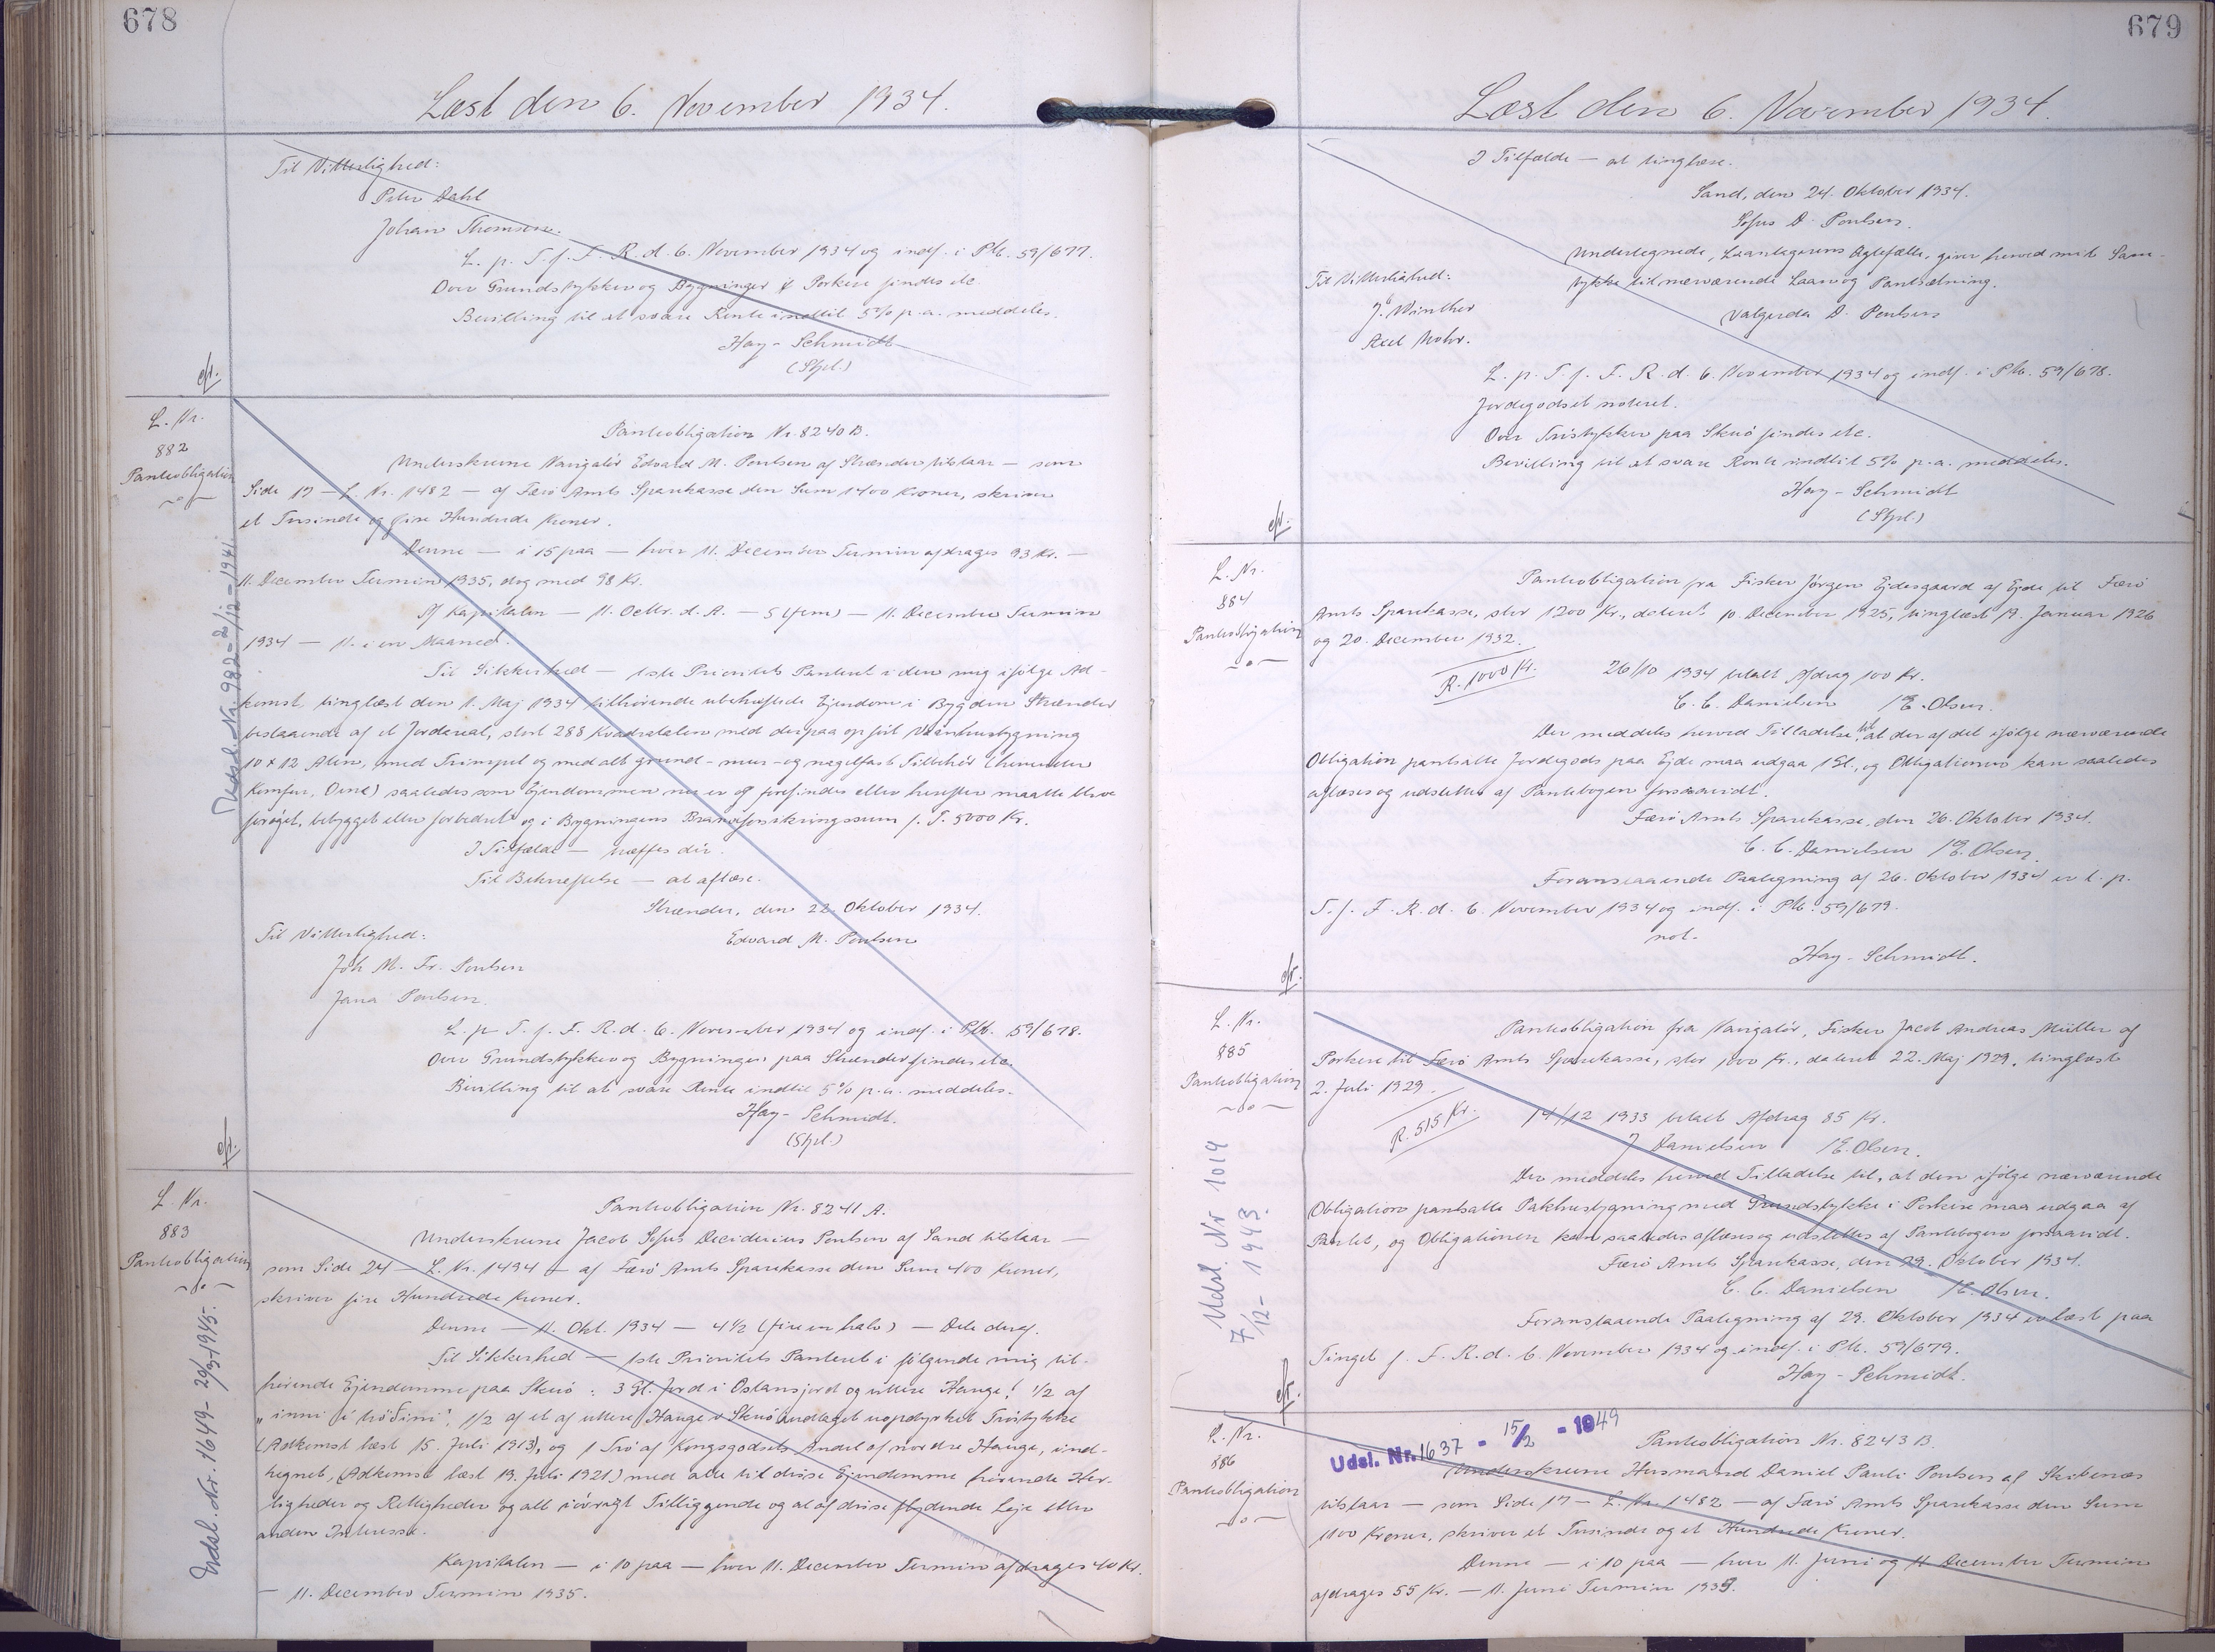 678
Læst den 6. November 1934.
Til Vitterlighed:
Peter Dahl
Johan Thomsen.
L. p. T. f. F. R. d. 6. November 1934 og indf. i Ptb. 59/677.
Over Grundstykker og Bygninger i Porkere findes etc.
Bevilling til at svare Rente indtil 5% p.a. meddeles.
Hay-Schmidt
(Stpl.)
cfr.
L. Nr.
882
Panteobligation
Udsl. Nr. 982 - 2/12 - 1941
Panteobligation Nr. 8240 B.
Underskrevne Navigatør Edvard M. Poulsen af Strænder tilstaar — som
Side 17 — L. Nr. 1482 — af Færø Amts Sparekasse den Sum 1400 Kroner, skriver
et Tusinde og fire Hundrede Kroner.
Denne — i 15 paa — hver 11. December Termin afdrages 93 Kr. —
11. December Termin 1935, dog med 98 Kr.
Af Kapitalen — 11. Octbr. d. A. — 5 (fem) — 11. December Termin
1934 — 11. i en Maaned.
Til Sikkerhed — 1ste Prioritets Panteret i den mig ifølge Ad-
komst, tinglæst den 1. Maj 1934 tilhørende ubehæftede Ejendom i Bygden Strænder
bestaaende af et Jordareal, stort 288 Kvadratalen med derpaa opført Vaaningsbygning
10 x 12 Alen, med Trimpul og med alt grund- mur- og nagelfast Tilbehør (herunder
Komfur, Ovne) saaledes som Ejendommen nu er og forefindes eller herefter maatte blive
forøget, bebygget eller forbedret og i Bygningens Brandforsikringssum f. T. 5000 Kr.
I Tilfælde — træffes der.
Til Bekræftelse — at aflæse.
Strænder, den 22. Oktober 1934.
Til Vitterlighed:
Edvard M. Poulsen
Joh M. Fr. Poulsen
Jana Poulsen.
L. p. T. f. F. R. d. 6. November 1934 og indf. i Ptb. 59/678.
Over Grundstykker og Bygninger paa Strænder findes etc.
Bevilling til at svare Rente indtil 5% p.a. meddeles.
Hay-Schmidt.
(Stpl.)
cfr.
L. Nr.
883
Panteobligation
Udsl. Nr. 1649 - 20/3-1945.
Panteobligation Nr. 8241 A.
Underskrevne Jacob Sofus Deciderius Poulsen af Sand tilstaar —
som Side 24 — L. Nr. 1494 — af Færø Amts Sparekasse den Sum 400 Kroner,
skriver fire Hundrede Kroner.
Denne — 11. Okt. 1934 — 4½ (fire en halv) — Dele deraf.
Til Sikkerhed — 1ste Prioritets Panteret i følgende mig til-
hørende Ejendomme paa Skuø: 3 Gl. Jord i Ostansjord og uttere Hauge, 1/2 af
1/2 af et af uttere Hauge v Skuø udlaget uopdyrket Trøstykke
(Adkomst læst 15. Juli 1913), og 1 Trø af Kongsgodsets Andel af nordre Hauge, ind-
hegnet, (Adkomst læst 19. Juli 1921) med alle til disse Ejendomme hørende Her-
ligheder og Rettigheder og alt iøvrigt Tilliggende og al af disse flydende Leje eller
anden Interesse.
Kapitalen — i 10 paa — hver 11. December Termin afdrages 40 Kr.
— 11. December Termin 1935.
679
Læst den 6. November 1934.
I Tilfælde — at tinglæse.
Sand, den 24. Oktober 1934.
Sofus D. Poulsen.
Undertegnede, Laantagerens Ægtefælle, giver herved mit Sam-
tykke til nærværende Laan og Pantsætning.
Til Vitterlighed:
Valgerda D. Poulsen
J. Winther
Axel Mohr.
L. p. T. f. F. R. d. 6. November 1934 og indf. i Ptb. 59/678.
Jordegodset noteret.
Over Trøstykker paa Skuø findes etc.
Bevilling til at svare Rente indtil 5% p.a. meddeles.
Hay-Schmidt
(Stpl.)
cfr.
L. Nr.
884
Panteobligation
Panteobligation fra Fisker Jørgen Ejdesgaard af Ejde til Færø
Amts Sparekasse, stor 1200 Kr., dateret 10. December 1925, tinglæst 19. Januar 1926
og 20. December 1932.
R. 1000 Kr.
26/10 1934 betalt Afdrag 100 Kr.
C. C. Danielsen /E. Olsen.
Der meddeles herved Tilladelse til, at der af det ifølge nærværende
Obligation pantsatte Jordegods paa Ejde maa udgaa 1 Gl., og Obligationen kan saaledes
aflæses og udslettes af Pantebogen forsaavidt.
Færø Amts Sparekasse, den 26. Oktober 1934.
C. C. Danielsen /E. Olsen.
Foranstaaende Paategning af 26. Oktober 1934 er l. p.
T. f. F. R. d. 6. November 1934 og indf. i Ptb. 59/679.
not.
Hay-Schmidt.
cfr.
L. Nr.
885
Panteobligation
Udsl. Nr 1019
7/12 - 1943.
Panteobligation fra Navigatør, Fisker Jacob Andreas Müller af
Porkere til Færø Amts Sparekasse, stor 1000 Kr., dateret 22. Maj 1929, tinglæst
2. Juli 1929.
R. 515 Kr.
14/12 1933 betalt Afdrag 85 Kr.
J Danielsen /E. Olsen.
Der meddeles herved Tilladelse til, at den ifølge nærværende
Obligation pantsatte Pakhusbygning med Grundstykke i Porkere maa udgaa af
Pantet, og Obligationen kan saaledes aflæses og udslettes af Pantebogen forsaavidt.
Færø Amts Sparekasse, den 29. Oktober 1934.
C. C. Danielsen /E. Olsen.
Foranstaaende Paategning af 29. Oktober 1934 er læst paa
Tinget f. F. R. d. 6. November 1934 og indf. i Ptb. 59/679.
Hay-Schmidt.
cfr.
L. Nr.
886
Panteobligation
Udsl. Nr. 1637 - 15/2 - 1949
Panteobligation Nr. 8243 B.
Underskrevne Husmand Daniel Pauli Poulsen af Skibenæs
tilstaar — som Side 17 — L. Nr. 1482 — af Færø Amts Sparekasse den Sum
1100 Kroner, skriver et Tusinde og et Hundrede Kroner.
Denne — i 10 paa — hver 11. Juni og 11. December Termin
afdrages 55 Kr. — 11. Juni Termin 1935.